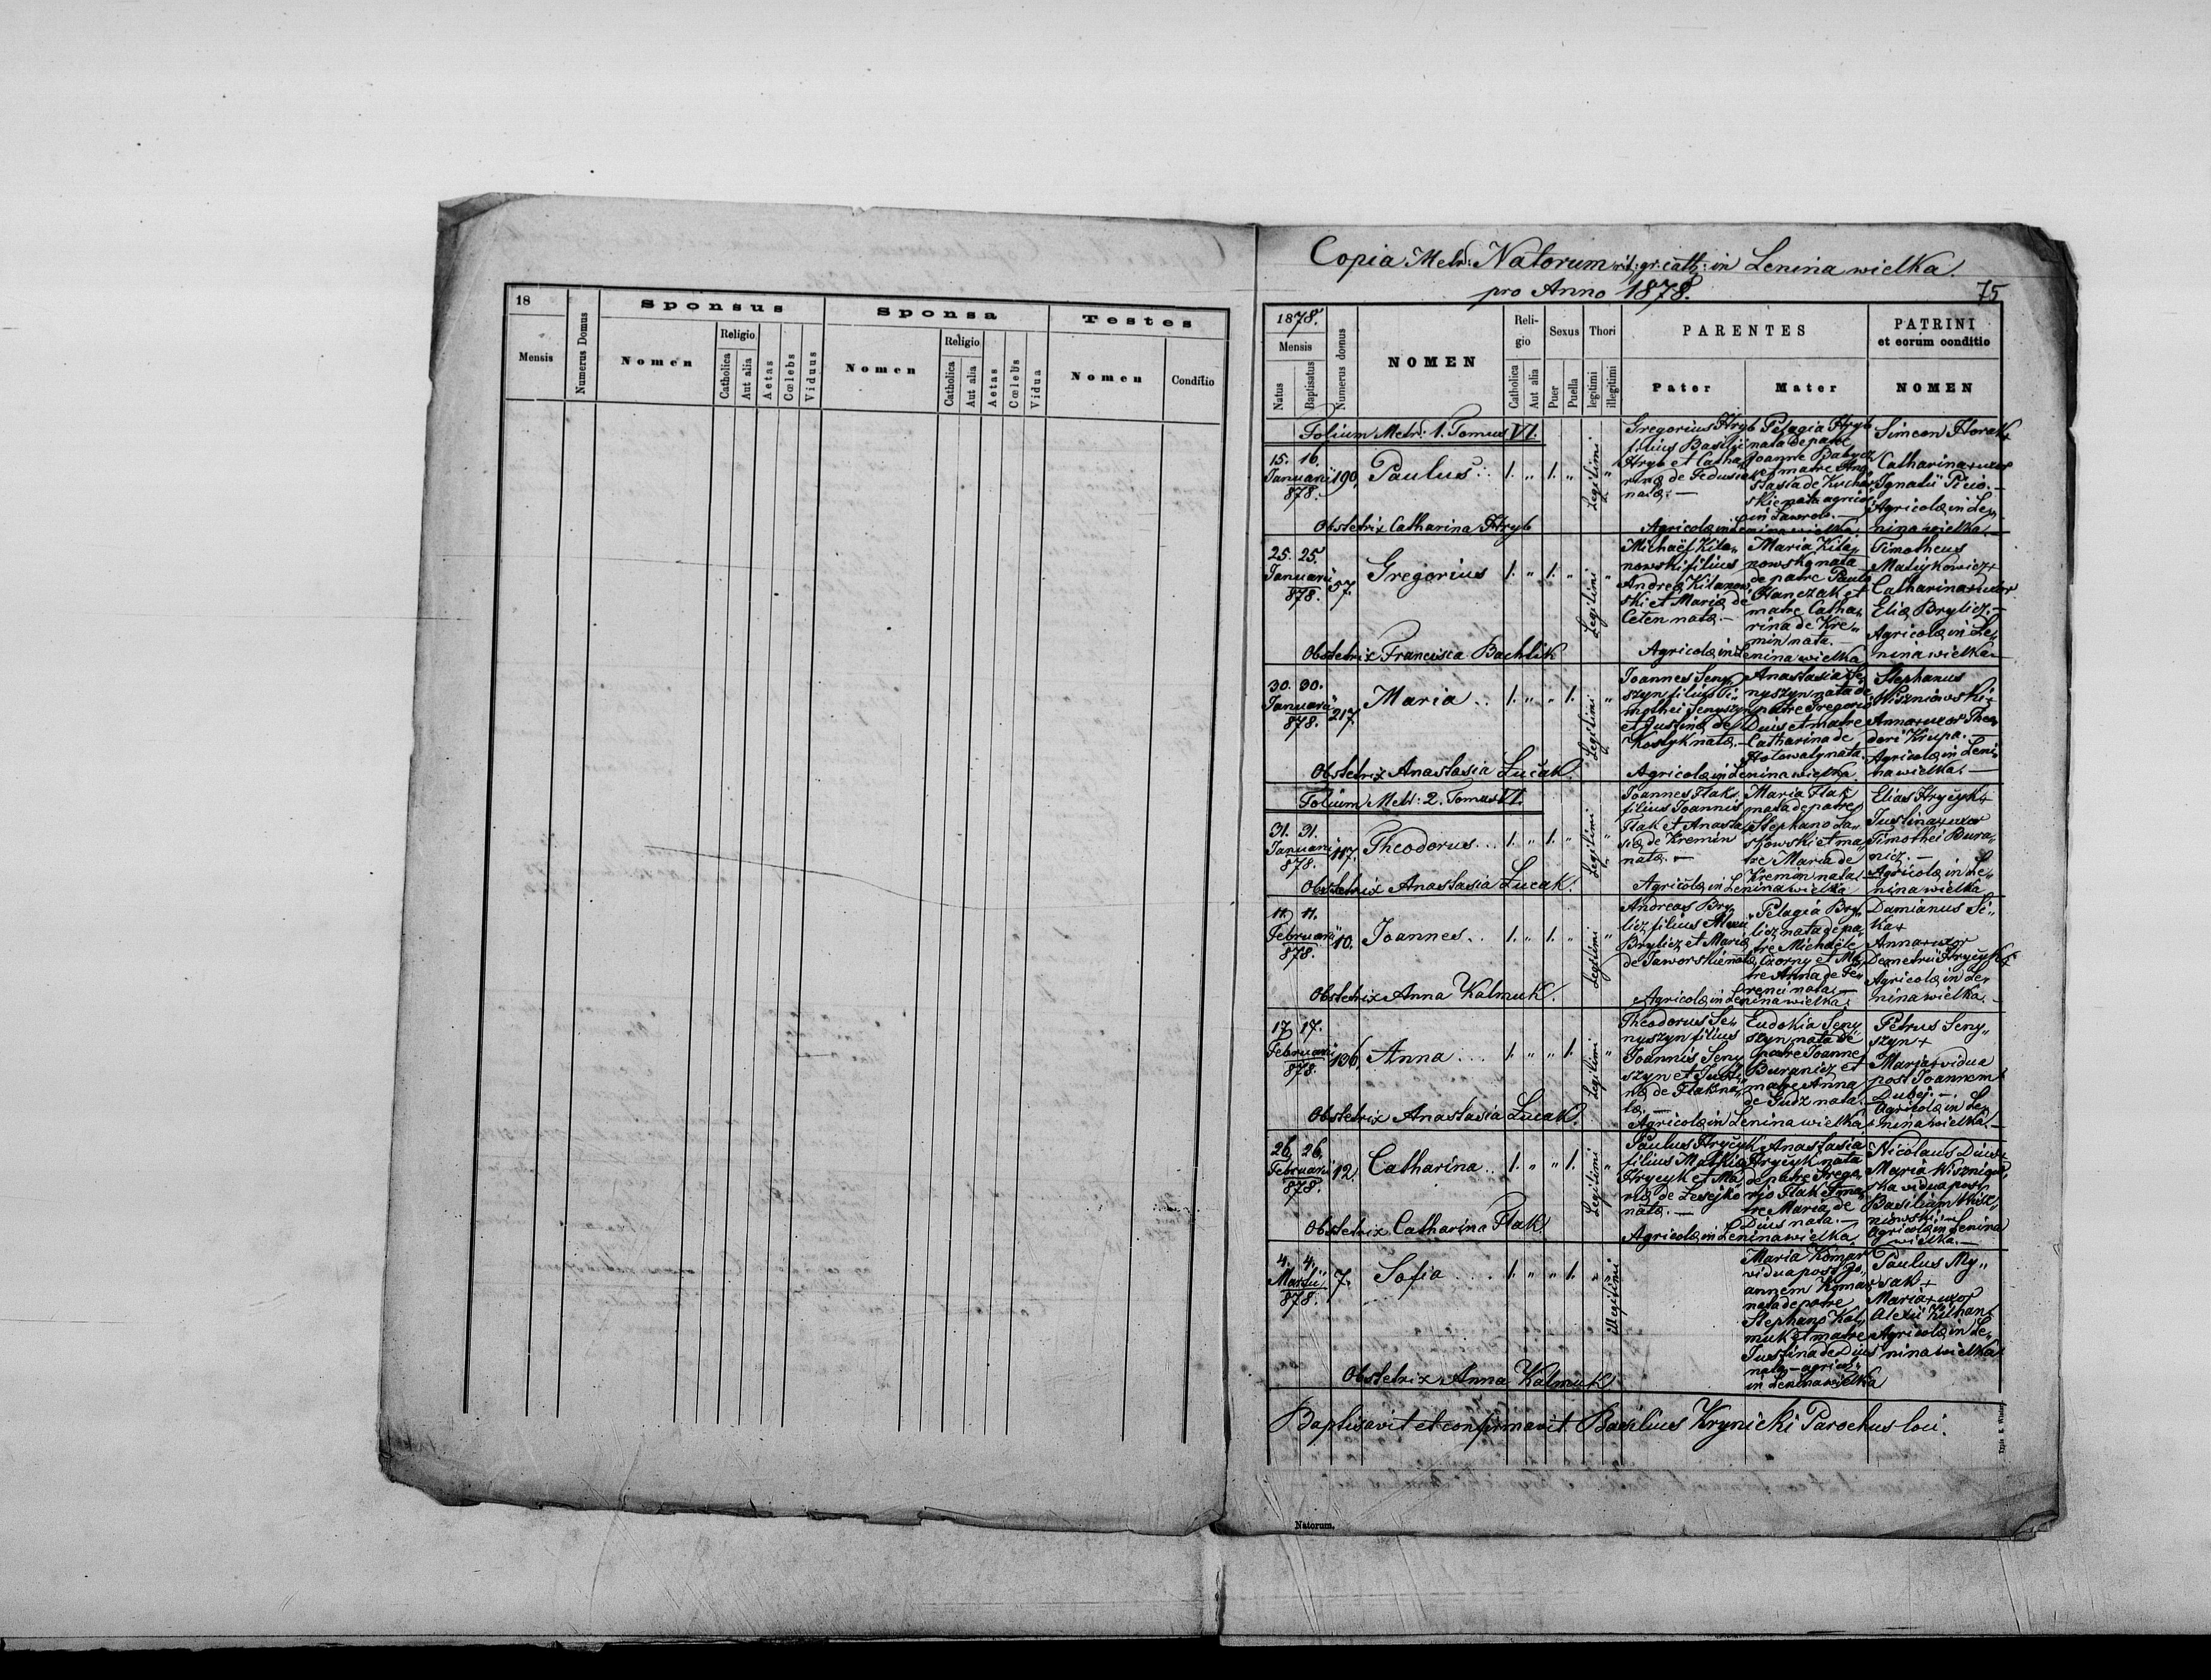 18
Mensis
Numerus Domus
Sponsus
Nomen
Religio
Catholica
Aut alia
Aetas
Cœlebs
Viduus
Sponsa
Nomen
Religio
Catholica
Aut alia
Aetas
Cœlebs
Vidua
Testes
Nomen
Conditio
Copia Metr: Natorum rit: gr: cath: in Lenina wielka.
pro Anno 1878.
75
1878.
Mensis
Natus
Baptisatus
Numerus domus
NOMEN
Reli-
gio
Catholica
Aut alia
Sexus
Puer
Puella
Thori
legitimi
illegitimi
PARENTES
Pater
Mater
PATRINI
et eorum conditio
NOMEN
Folium Metr: 1. Tomus VI.
15. 16.
Januarii 190.
878.
Paulus . . 1. „ 1. „ Legitimi „
Gregorius Hryb
filius Basilii
Hryb et Catha„
rinæ de Fedusiak
natæ. —
Pelagia Hryb
nata de patre
Joanne Babycz
et matre Ana
stasia de Kuchar
ski nata agricol
in Jawrow. —
Simeon Horak+
Catharina+uxor
Ignatii Picio. —
Agricolæ in Le„
nina wielka. —
Obstetrix Catharina Hryb
Agricolæ in Lenina wielka
25. 25.
Januarii 57.
878.
Gregorius 1. „ 1. „ Legitimi „
Michaël Kila„
nowski filius
Andreæ Kilanow„
ski et Mariæ de
Ceten natæ. —
Maria Kila„
nowska nata
de patre Paulo
Hanczak et
matre Catha„
rina de Kre„
min nata. —
Timotheus
Matiykowicz+
Catharina+uxor
Eliæ Brylicz. —
Agricolæ in Le„
nina wielka
Obstetrix Francisca Bachlik
Agricolæ in Lenina wielka
30. 30.
Januarii 217.
878.
Maria . . 1. „ „ 1. Legitimi „
Joannes Seny„
szyn filius Ti„
mothei Senyszyn
et Justinæ de
Kostyk natæ. —
Anastasia Se„
nyszyn nata de
patre Gregorio
Duis et matre
Catharina de
Hotowaly nata.
Stephanus
Wiszniowski+
Anna+uxor Theo„
dori Krupa. —
Agricolæ in Leni„
na wielka. —
Obstetrix Anastasia Łucak.
Agricolæ in Lenina wielka.
Folium Metr: 2. Tomus VI.
31. 31.
Januarii 117.
878.
Theodorus . . 1. „ 1. „ Legitimi „
Joannes Flak
filius Joannis
Flak et Anasta„
siæ de Kremin
natæ. —
Maria Flak
nata de patre
Stephano La„
skowski et ma„
tre Maria de
Kremin nata. —
Elias Hryčyk+
Justina+uxor
Timothei Bura„
nicz. —
Agricolæ in Le„
nina wielka
Obstetrix Anastasia Łucak.
Agricolæ in Lenina wielka
11. 11.
Februarii 10.
878.
Joannes . . 1. „ 1. „ Legitimi „
Andreas Bry„
licz filius Alexii
Brylicz et Mariæ
de Jaworski natæ
Pelagia Bry„
licz nata de pa„
tre Michaële
Czorny et Ma„
tre Anna de Fe„
renci nata. —
Damianus Si„
ka+
Anna+uxor
Demetrii Hryčyk+
Agricolæ in Le„
nina wielka. —
Obstetrix Anna Kalmuk.
Agricolæ in Lenina wielka.
17. 17.
Februarii 136.
878.
Anna . . . 1. „ „ 1. Legitimi „
Theodorus Se„
nyszyn filius
Joannis Seny„
szyn et Justi„
næ de Flak na„
tæ. —
Eudokia Seny„
szyn nata de
patre Joanne
Buranicz et
matre Anna
de Gudz nata. —
Petrus Seny„
szyn+
Maria+vidua
post Joannem
Dubej. —
Agricolæ in Le„
nina wielka. —
Obstetrix Anastasia Łucak.
Agricolæ in Lenina wielka
26. 26.
Februarii 12.
878.
Catharina . . 1. „ „ 1. Legitimi „
Paulus Hryčyk
filius Mathiæ
Hryčyk et Ma„
riæ de Lesejko
natæ. —
Anastasia
Hryčyk nata
de patre Grego„
rio Flak et ma„
tre Maria de
Duis nata. —
Nicolaus Duis+
Maria Wiszniow„
ska vidua post
Basilium Wisz„
niowski
Agricolæ in Lenina
wielka. —
Obstetrix Catharina Flak.
Agricolæ in Lenina wielka
4. 4.
Martii 7.
878.
Sofia . . . . 1. „ „ 1. „ illegitimi
Maria Komar
vidua post Jo„
annem Komar
nata de patre
Stephano Kal„
muk et matre
Justina de Duis
nata — agricol:
in Lenina wielka
Paulus My„
sak+
Maria+uxor
Alexii Kilhan+
Agricolæ in Le„
nina wielka
Obstetrix Anna Kalmuk
Baptisavit et confirmavit Basilius Krynicki Parochus loci.
Natorum.